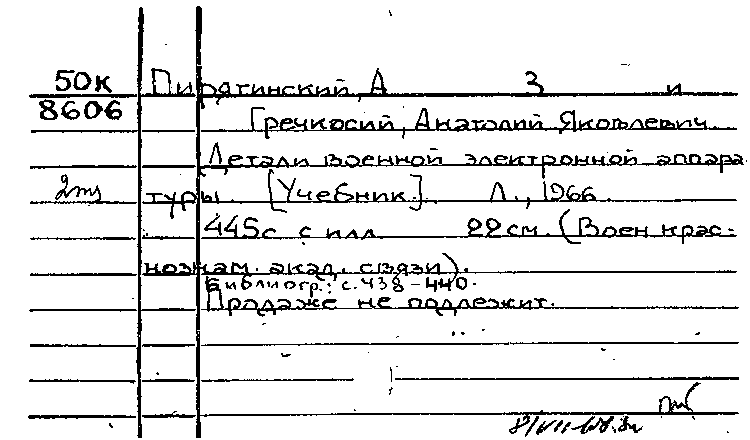 50к Пирятинский, А З и
8606
Гречкосий, Анатолий Яковлевич.
Детали военной электронной аппара
2тз туры. [Учебник]. Л., 1966.
445с с илл 22см. (Воен крас-
нознам. акад. связи).
Библиогр.: с. 438-440.
Продаже не подлежит.